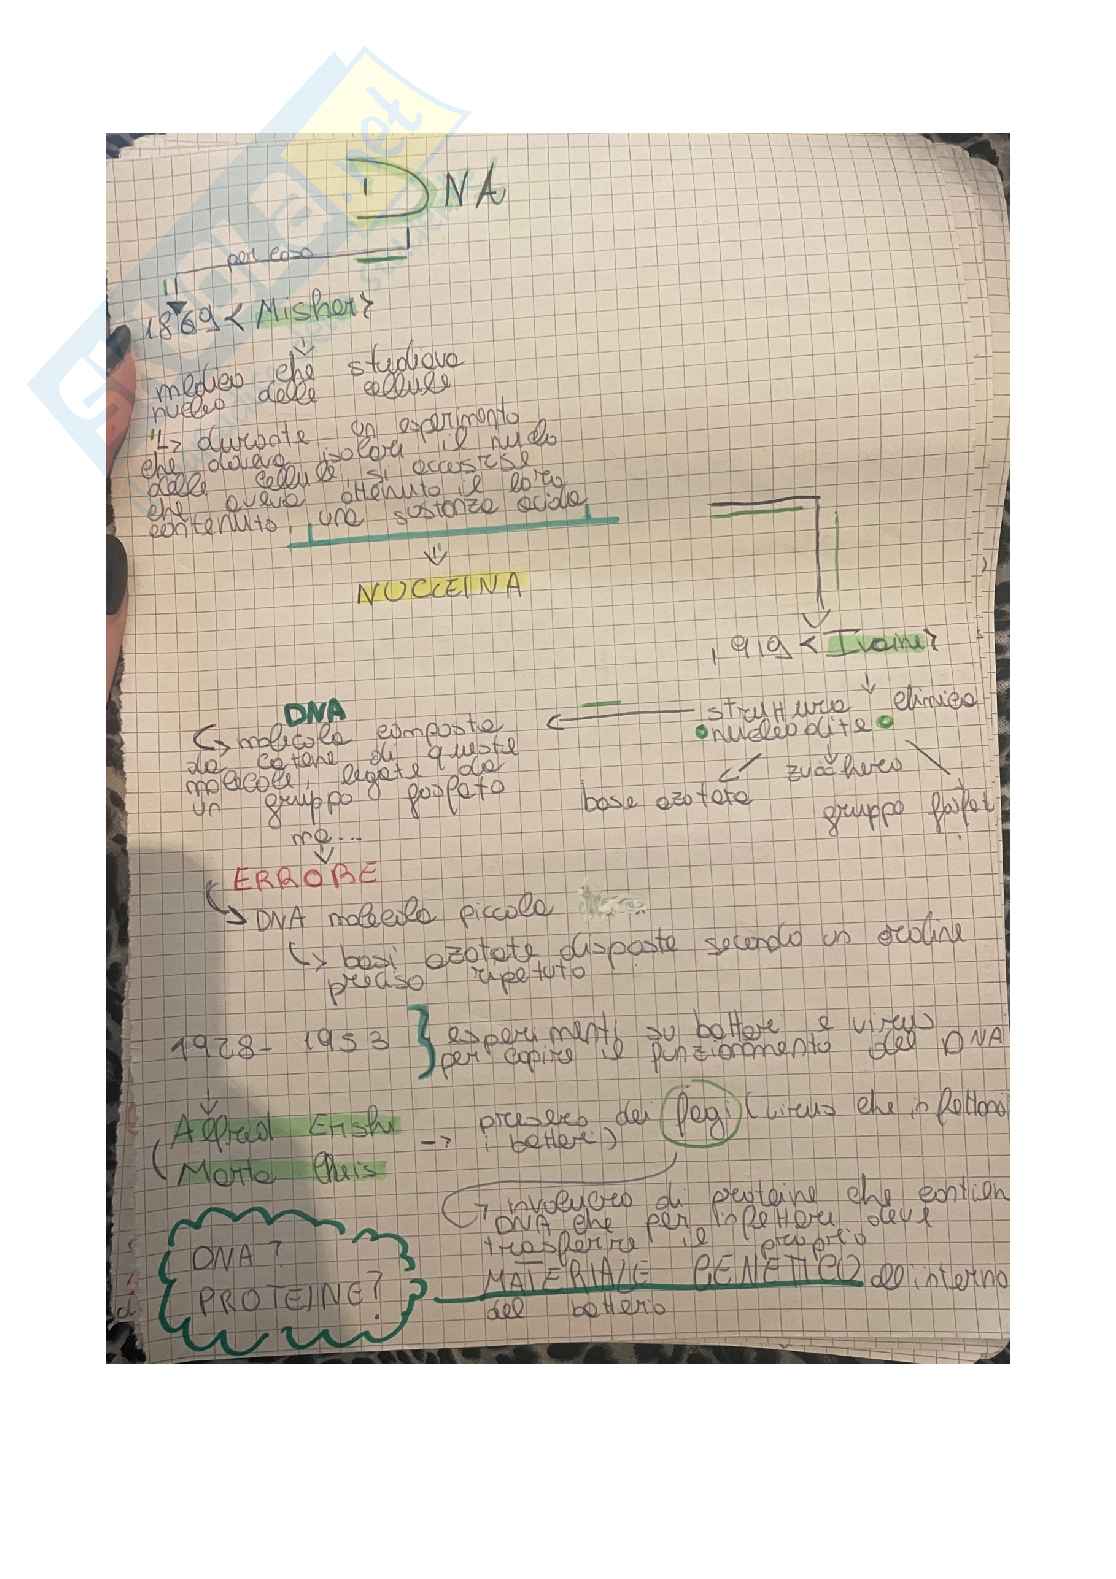 DNA
per caso
1869 < Misher >
medico che studiava
nucleo delle cellule
durante un esperimento
che doveva isolare il nucleo
delle cellule, si accorse
che aveva ottenuto il loro
contenuto, una sostanza acida
NUCLEINA
1919 < Ivaine >
struttura chimica
nucleotide
zucchero
base azotata
gruppo fosfat
DNA
molecola composta
da catene di queste
molecole, legate da
un gruppo fosfato
ma...
ERRORE
DNA molecola piccola
basi azotate disposte secondo un ordine
preciso ripetuto
1928 - 1953
esperimenti su battere e virus
per capire il funzionamento del DNA
Alfred Ershi
Marta Cheis
presero dei fagi (virus che infettano
i batteri)
involucro di proteine che contien
DNA che per infettare deve
trasferire il proprio
MATERIALE GENETICO all'interno
del batterio
DNA?
PROTEINE?
skuola.net